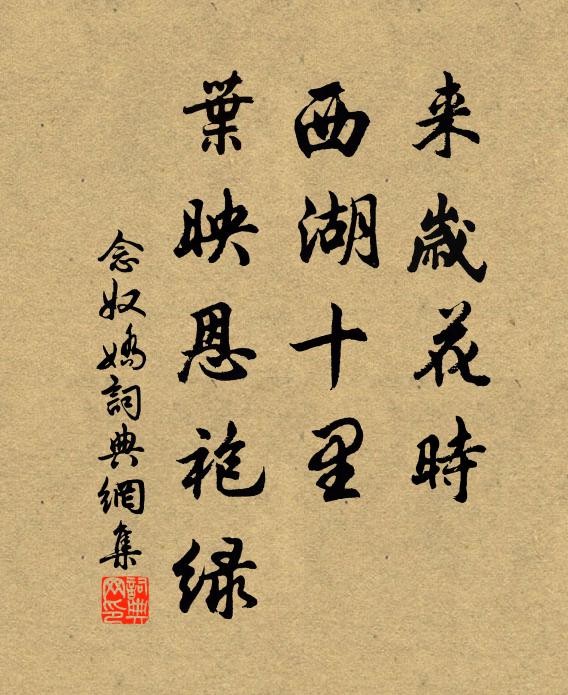 来歲花時
西湖十里
葉映恩袍绿
念奴嬌詞典網集
詞典网印